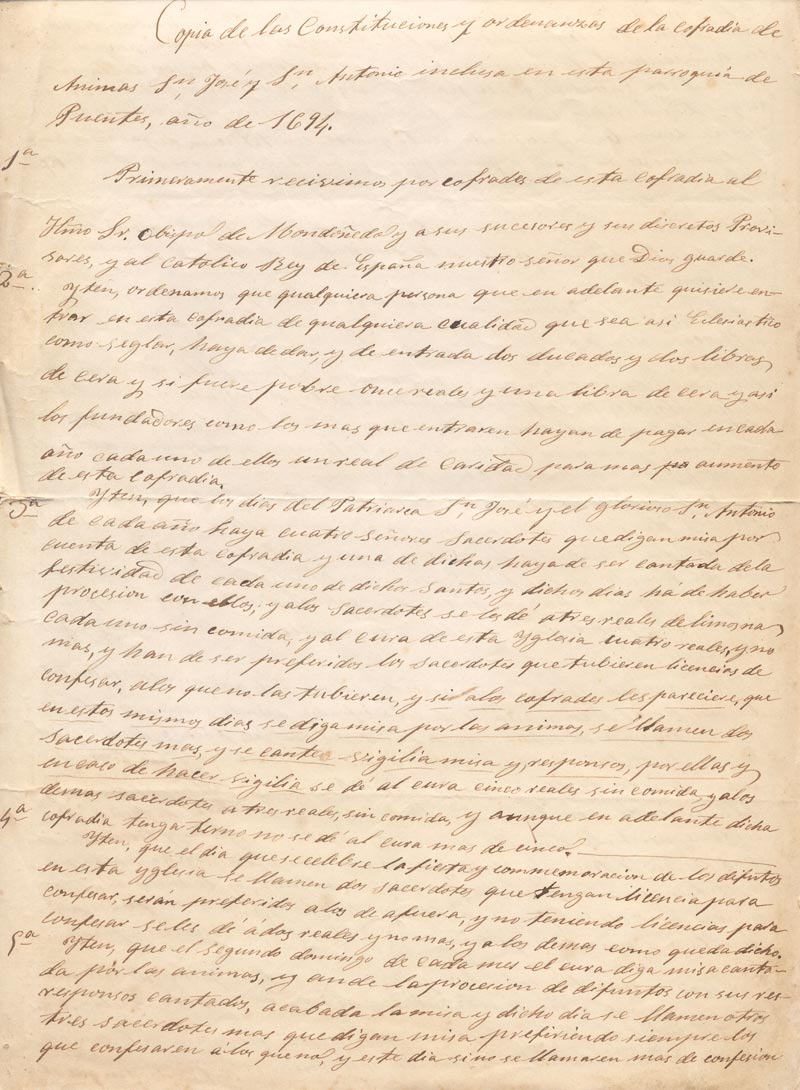 Copia de las Constituciones y ordenanzas de la cofradia de
Animas Sn. José y Sn. Antonio inclusa en esta parroquia de
Puentes, año de 1694.
1ª
Primeramente recivimos por cofrades de esta cofradia al
Iltmo Sr. Obispo de Mondoñedo y a sus sucesores y sus discretos Provi-
sores, y al catolico Rey de España nuestro señor que Dios guarde.
2ª
Yten, ordenamos que qualquiera persona que en adelante quisiere en-
trar en esta cofradia de qualquiera cualidad que sea asi Eclesiastico
como seglar, haya de dar, y de entrada dos ducados y dos libras
de cera y si fuere pobre once reales y una libra de cera y asi
los fundadores como los mas que entraren hayan de pagar en cada
año cada uno de ellos un real de caridad para mas aumento
de esta cofradia.
3ª
Yten, que los dias del Patriarca Sn. José y el glorioso Sn. Antonio
de cada año haya cuatro señores sacerdotes que digan misa por
cuenta de esta cofradia y una de dichas haya de ser cantada de la
festividad de cada uno de dichos Santos, y dichos dias há de haber
procesion con ellos; y a los sacerdotes se les dé a tres reales de limosna
cada uno sin comida, y al cura de esta Yglesia cuatro reales, y no
mas, y han de ser preferidos los sacerdotes que tubieren licencias de
confesar, a los que no las tubieren, y si a los cofrades les pareciere, que
en estos mismos dias se diga misa por las animas, se llamen dos
sacerdotes mas, y se cante vigilia misa y responsos, por ellas y
en caso de hacer vigilia se dé al cura cinco reales sin comida y a los
demas sacerdotes a tres reales, sin comida, y aunque en adelante dicha
cofradia tenga terno no se dé al cura mas de cinco.
4ª
Yten, que el dia que se celebre la fiesta y commemoracion de los difuntos
en esta Yglesia se llamen dos sacerdotes que tengan licencia para
confesar, serán preferidos a los de afuera, y no teniendo licencias para
confesar se les dé á dos reales y no mas, y a los demas como queda dicho.
5ª
Yten, que el segundo domingo de cada mes el cura diga misa canta-
da por las animas, y ande la procesion de difuntos con sus res-
responsos cantados, acabada la misa y dicho dia se llamen otros
tres sacerdotes mas que digan misa prefiriendo siempre los
que confesaren á los que no, y este dia si no se llamaren mas de confesion